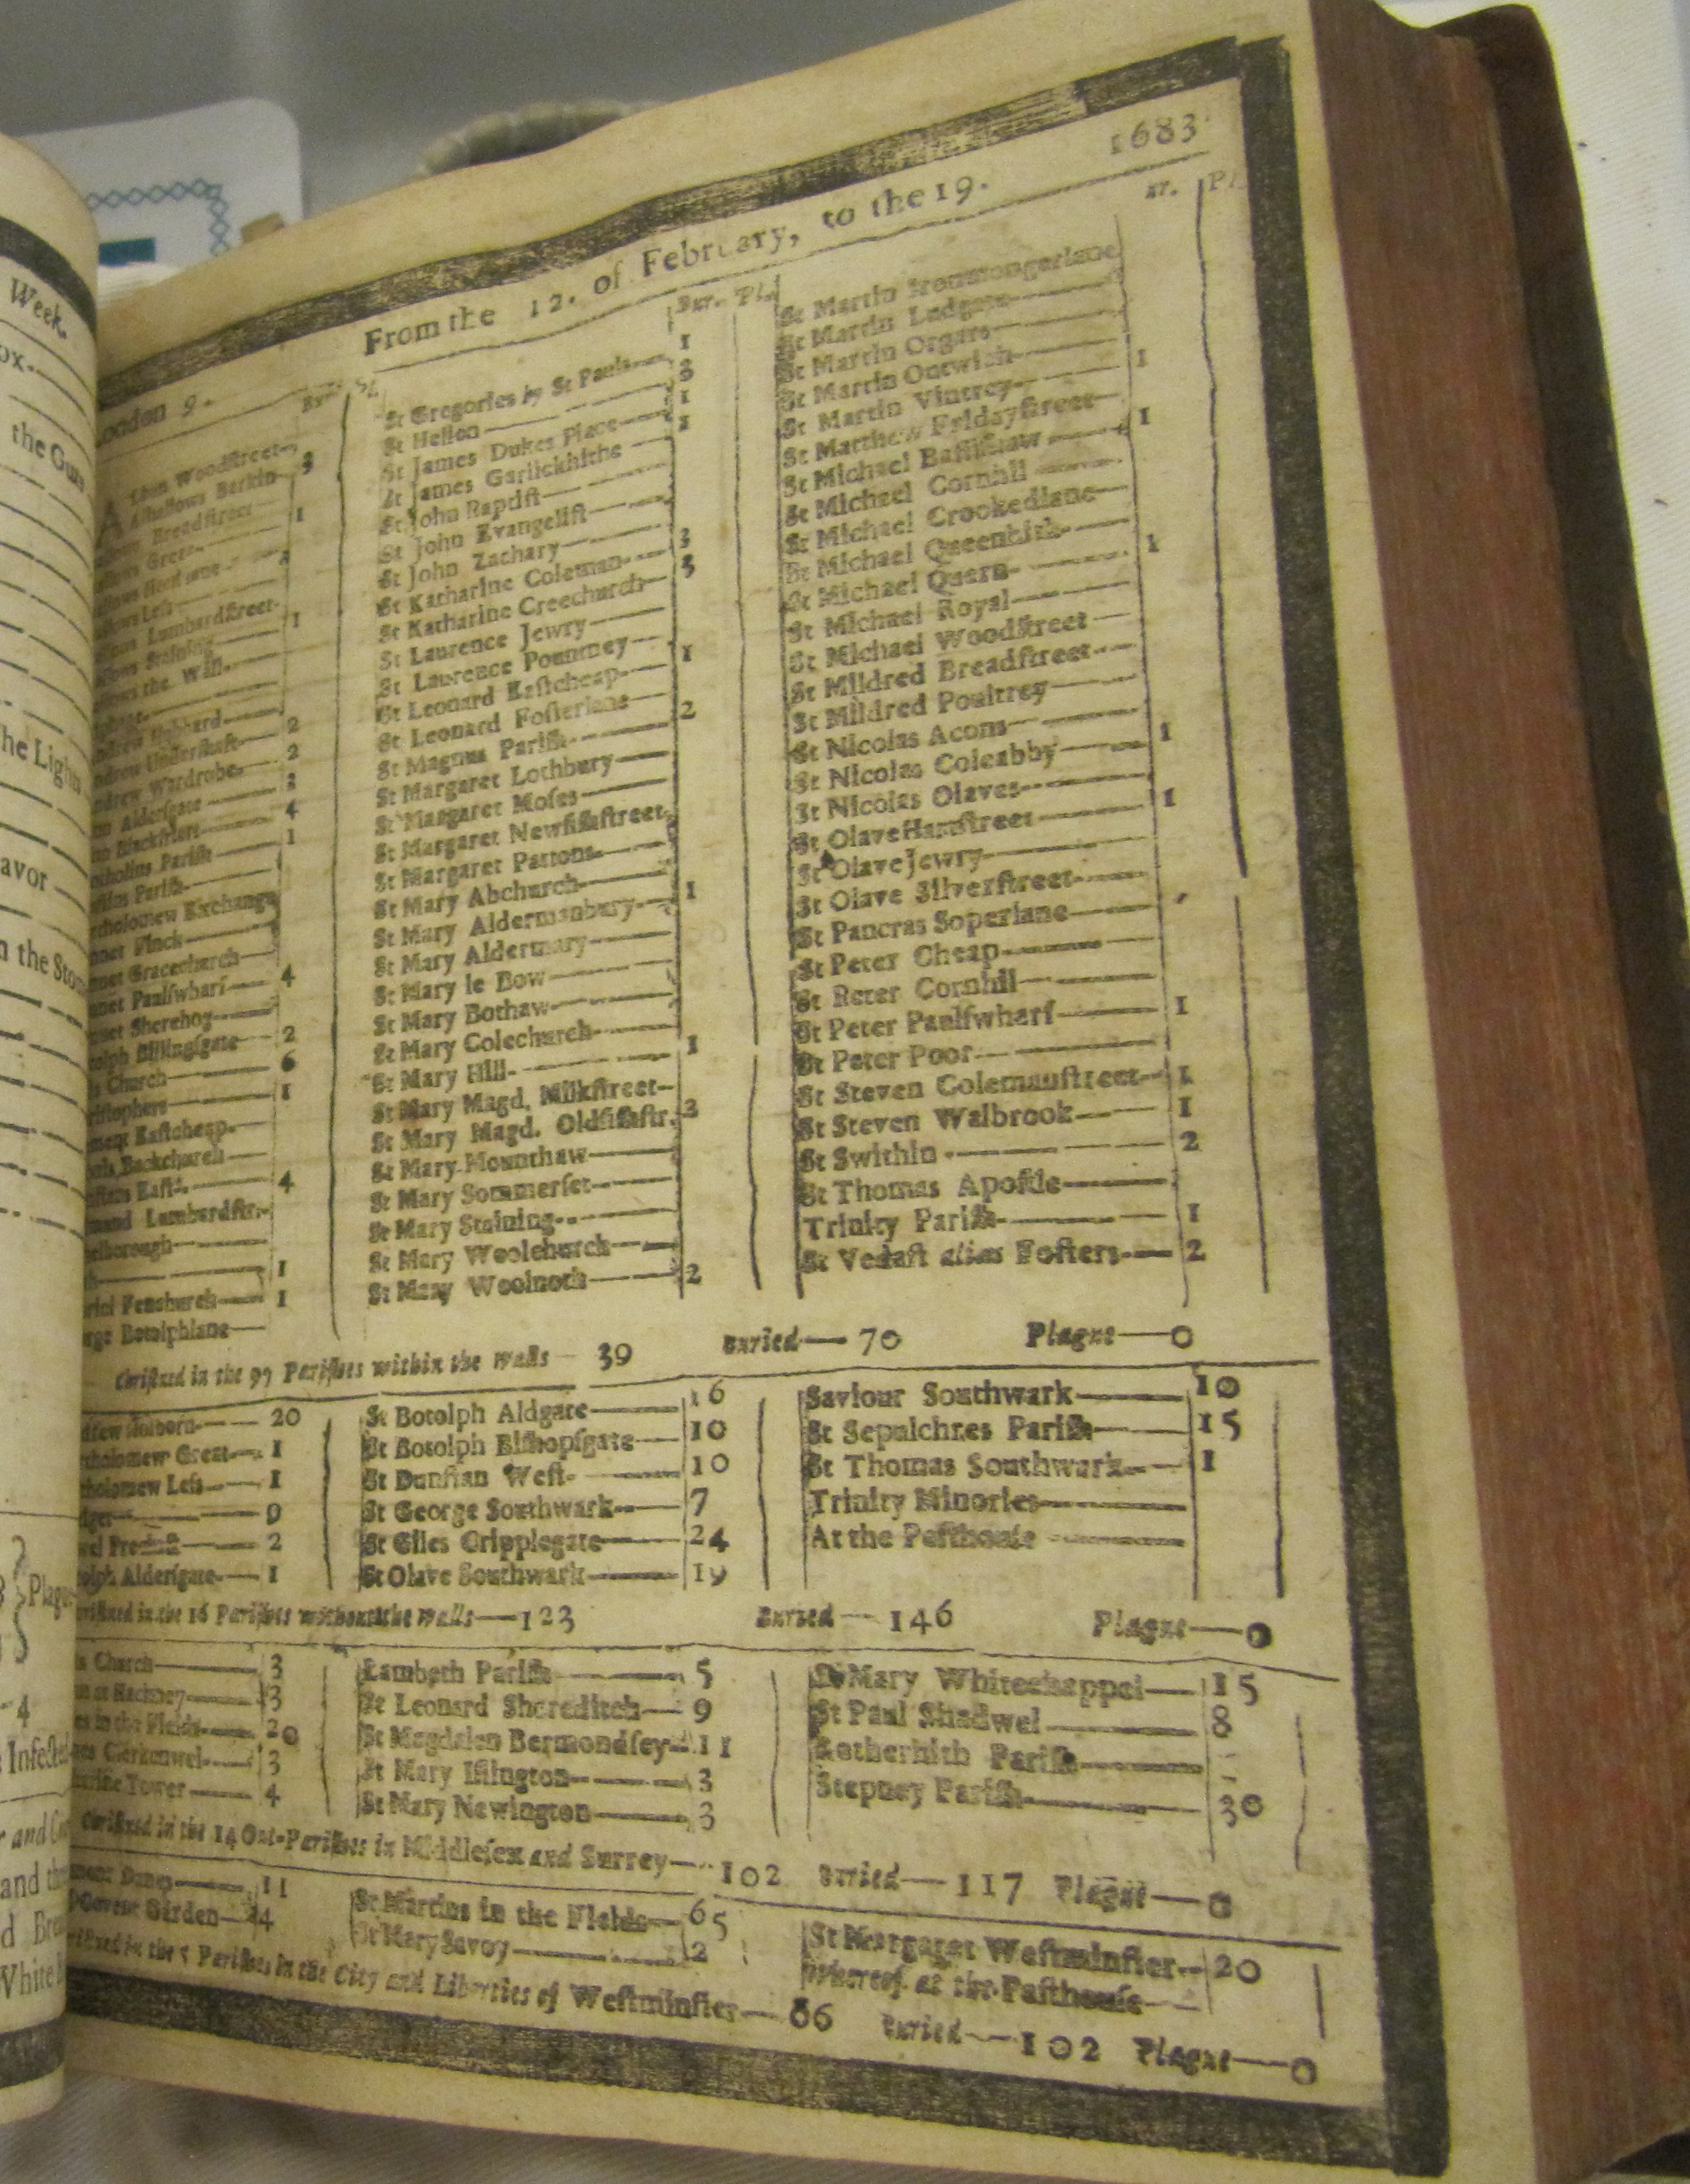 Week.
ox.
the Guts
the Light
avor
n the Stom
Plague
4
Infected
and
White
1683
From the 12. of February, to the 19.
London 9.
Bur. Pl.
Woodstreet
Alhallows Barkin 3
Breadstreet
1
Lumbardstreet
Staining 1
the Wall
Hubbard
ndrew Undershaft 2
ndrew Wardrobe 2
Aldersgate
Blackfriars 4
Parish 1
Parish
rtholomew Exchange
nnet Finck
nnet Gracechurch
nnet Paulswharf 4
nnet Sherehog
olph Billingsgate 2
s Church 6
ristophers 1
ment Eastcheap
Backchurch
nstans East 4
mund Lumbardstr.
elborough
1
Fenchurch 1
rge Botolphlane
Bur. Pl.
St Gregories by St Pauls 1
St Hellen 3
St James Dukes Place 1
St James Garlickhithe 1
St John Baptist
St John Evangelist
St John Zachary
St Katharine Coleman 3
St Katharine Creechurch 3
St Laurence Jewry
St Laurence Pountney
St Leonard Eastcheap 1
St Leonard Fosterlane
St Magnus Parish 2
St Margaret Lothbury
St Margaret Moses
St Margaret Newfishstreet
St Margaret Pattons
St Mary Abchurch
St Mary Aldermanbury 1
St Mary Aldermary
St Mary le Bow
St Mary Bothaw
St Mary Colechurch
St Mary Hill 1
St Mary Magd. Milkstreet
St Mary Magd. Oldfishstr. 3
St Mary Mounthaw
St Mary Sommerset
St Mary Staining
St Mary Woolchurch
St Mary Woolnoth 2
ur. Pl.
St Martin Ironmongerlane
St Martin Ludgate
St Martin Orgars
St Martin Outwich
St Martin Vintrey 1
St Matthew Fridaystreet
St Michael Bassishaw 1
St Michael Cornhil
St Michael Crookedlane
St Michael Queenhith
St Michael Quern 1
St Michael Royal
St Michael Woodstreet
St Mildred Breadstreet
St Mildred Poultrey
St Nicolas Acons
St Nicolas Coleabby 1
St Nicolas Olaves
St Olave Hartstreet 1
St Olave Jewry
St Olave Silverstreet
St Pancras Soperlane
St Peter Cheap
St Peter Cornhil
St Peter Paulswharf 1
St Peter Poor
St Steven Colemanstreet 1
St Steven Walbrook 1
St Swithin 2
St Thomas Apostle
Trinity Parish 1
St Vedast alias Fosters 2
Christned in the 97 Parishes within the Walls 39 Buried 70 Plague 0
drew Holborn 20
rtholomew Great 1
tholomew Less 1
dget 9
wel Precinct 2
olph Aldersgate 1
St Botolph Aldgate 16
St Botolph Bishopsgate 10
St Dunstan West 10
St George Southwark 7
St Giles Cripplegate 24
St Olave Southwark 19
Saviour Southwark 10
St Sepulchres Parish 15
St Thomas Southwark 1
Trinity Minories
At the Pesthouse
ristned in the 16 Parishes without the Walls 123 Buried 146 Plague 0
s Church 3
n at Hackney 3
es in the Fields 20
mes Clerkenwel 3
harine Tower 4
Lambeth Parish 5
St Leonard Shoreditch 9
St Magdalen Bermondsey 11
St Mary Islington 3
St Mary Newington 3
St Mary Whitechappel 15
St Paul Shadwel 8
Rotherhith Parish
Stepney Parish 30
Christned in the 14 Out-Parishes in Middlesex and Surrey 102 Buried 117 Plague 0
ment Danes 11
Covent Garden 4
St Martins in the Fields 65
St Mary Savoy 2
St Margaret Westminster 20
Whereof at the Pesthouse
ristned in the 5 Parishes in the City and Liberties of Westminster 86 Buried 102 Plague 0